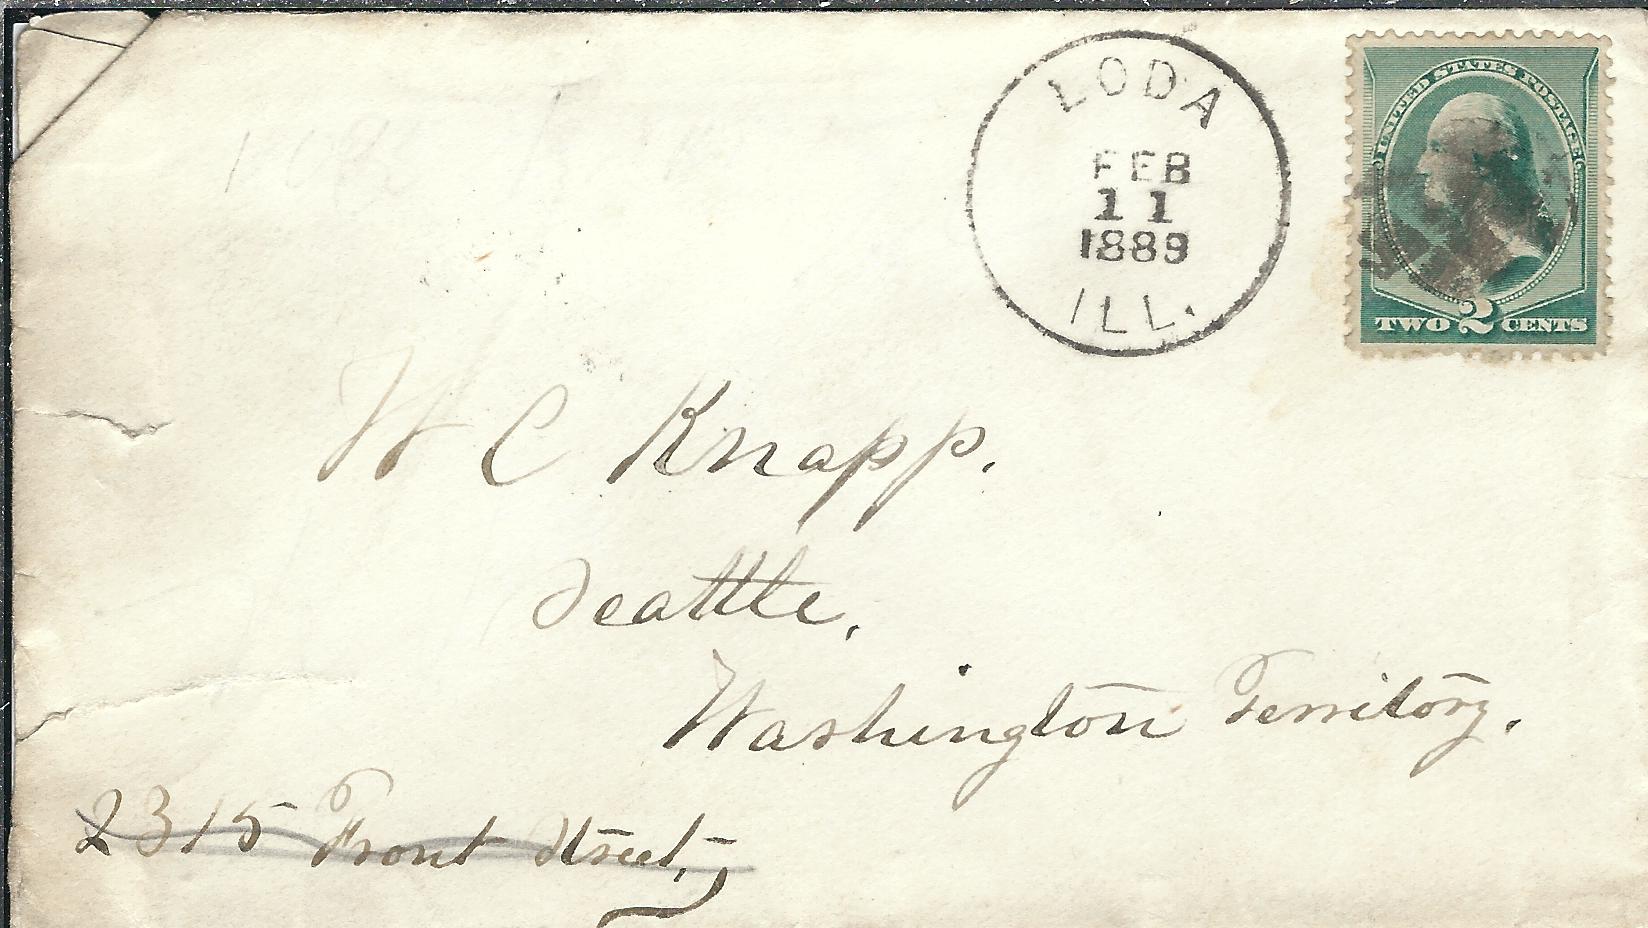 LODA
FEB
11
1889
ILL.
UNITED STATES POSTAGE
TWO 2 CENTS
W C Knapp.
Seattle,
Washington Territory.
2315 Front Street,